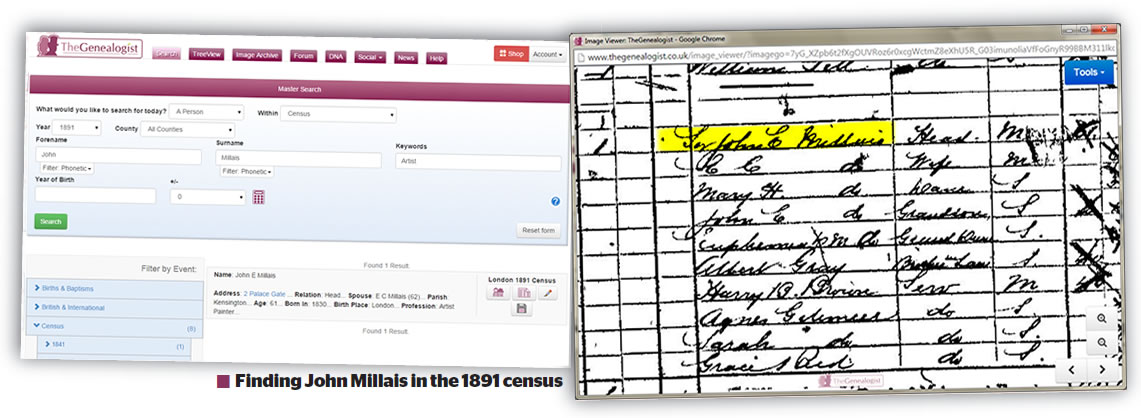 TheGenealogist
Search TreeView Image Archive Forum DNA Social News Help
Shop Account
Master Search
What would you like to search for today? A Person Within Census
Year 1891 County All Counties
Forename Surname Keywords
John Millais Artist
Filter: Phonetic Filter: Phonetic
Year of Birth +/-
0
Search
Reset form
Filter by Event:
Births & Baptisms
British & International
Census (8)
1841 (1)
Found 1 Result.
Name: John E Millais
London 1891 Census
Address: 2 Palace Gate ... Relation: Head... Spouse: E C Millais (62)... Parish:
Kensington... Age: 61... Born In: 1830... Birth Place: London... Profession: Artist
Painter...
Found 1 Result.
Finding John Millais in the 1891 census
Image Viewer: TheGenealogist - Google Chrome
www.thegenealogist.co.uk/image_viewer/?imagego=
Tools
William Tell do
Sir John E Millais Head M
E C do Wife M
Mary H. do S.
John E do Grandson S.
do S.
Albert Gray Brother Law S
Harry Serv M
Agnes do S.
Sarah do do S.
Grace Reid do S.
TheGenealogist